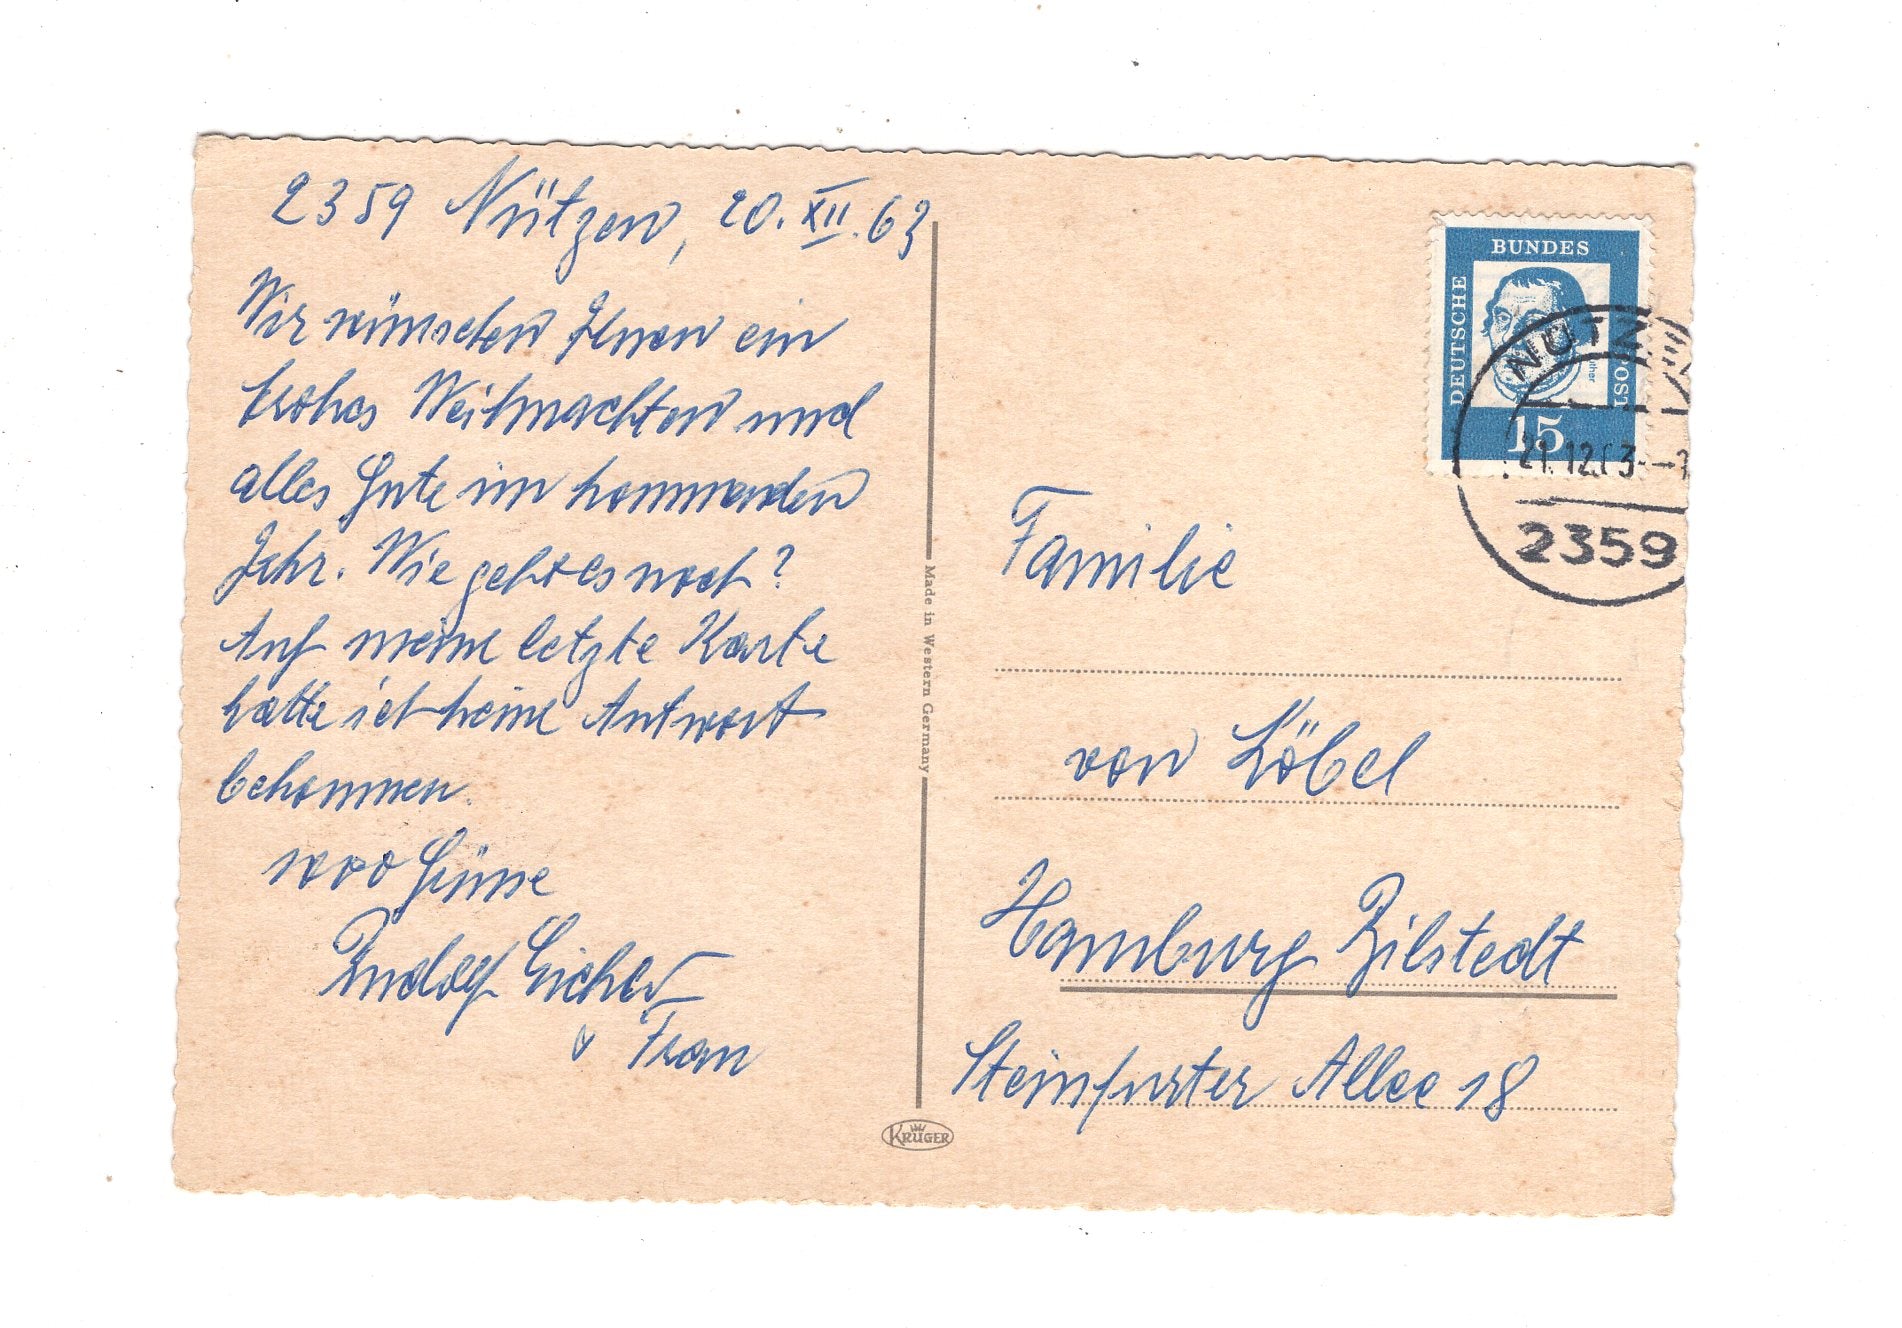 2359 Nützen, 20. XII. 63
Wir wünschen Ihnen ein
frohes Weihnachten und
alles Gute im kommenden
Jahr. Wie geht es noch?
Auf meine letzte Karte
hatte ich keine Antwort
bekommen.
1000 Grüsse
Rudolf
u Frau
Made in Western Germany
KRÜGER
DEUTSCHE
BUNDES
POST
15
NÜTZEN
21.12.63
2359
Familie
von Löbel
Hamburg Bilstedt
Steinfurter Allee 18